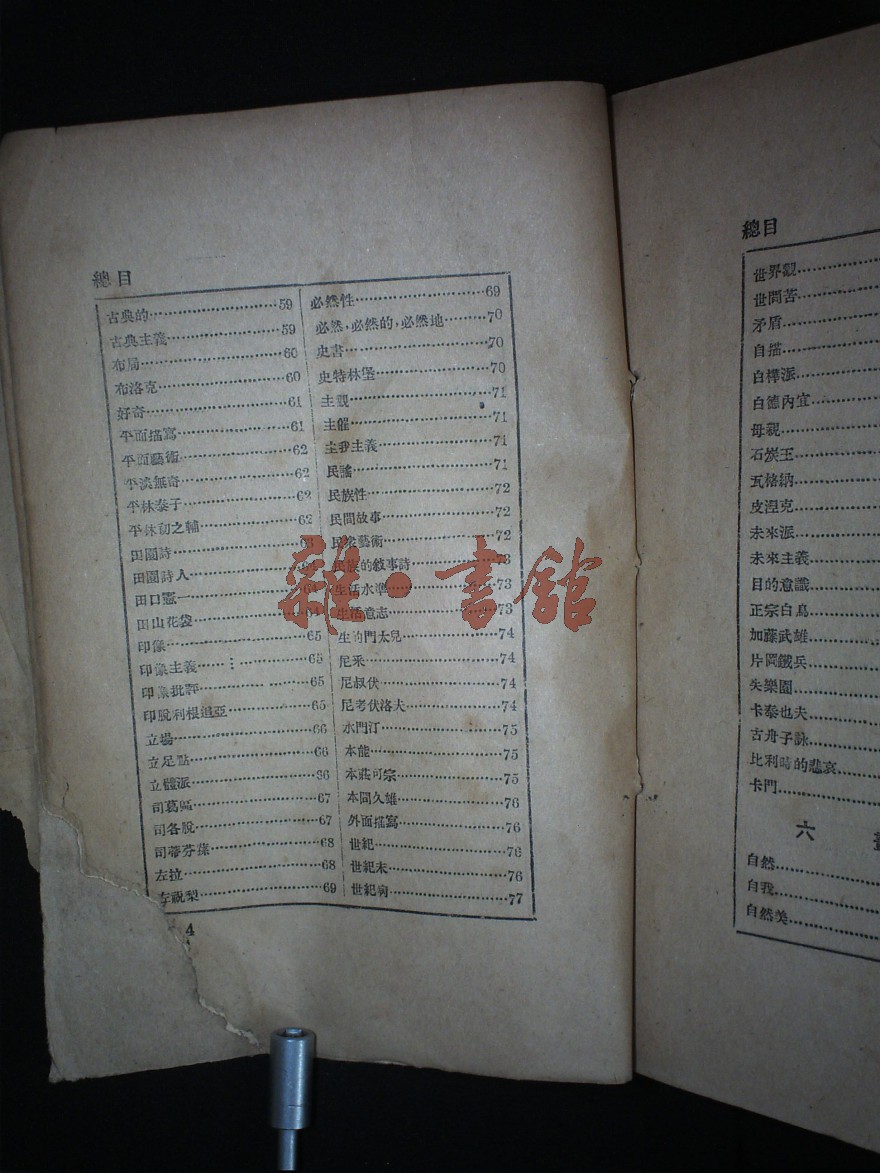 總目
古典的…59
古典主義…59
布局…60
布洛克…60
好奇…61
平面描寫…61
平面藝術…62
平淡無奇…62
平林泰子…62
平林初之輔…62
田園詩…63
田園詩人…64
田口憲一…64
田山花袋…64
印像…65
印像主義…65
印像批評…65
印脫利根追亞…65
立場…66
立足點…66
立體派…66
司葛德…67
司各脫…67
司蒂芬蓀…68
左拉…68
左祝梨…69
必然性…69
必然，必然的，必然地…70
史書…70
史特林堡…70
主觀…71
主催…71
主我主義…71
民謠…71
民族性…72
民間故事…72
民衆藝術…72
民族的敍事詩…73
生活水準…73
生活意志…73
生的門太兒…74
尼采…74
尼叔伏…74
尼考伏洛夫…74
水門汀…75
本能…75
本莊可宗…75
本間久雄…76
外面描寫…76
世紀…76
世紀末…76
世紀病…77
4
總目
世界觀
世間苦
矛盾
自描
白樺派
白德內宜
母親
石炭王
瓦格納
皮涅克
未來派
未來主義
目的意識
正宗白鳥
加藤武雄
片岡鐵兵
失樂園
卡泰也夫
古舟子詠
比利時的悲哀
卡門
六
自然
自我
自然美
雜·書館